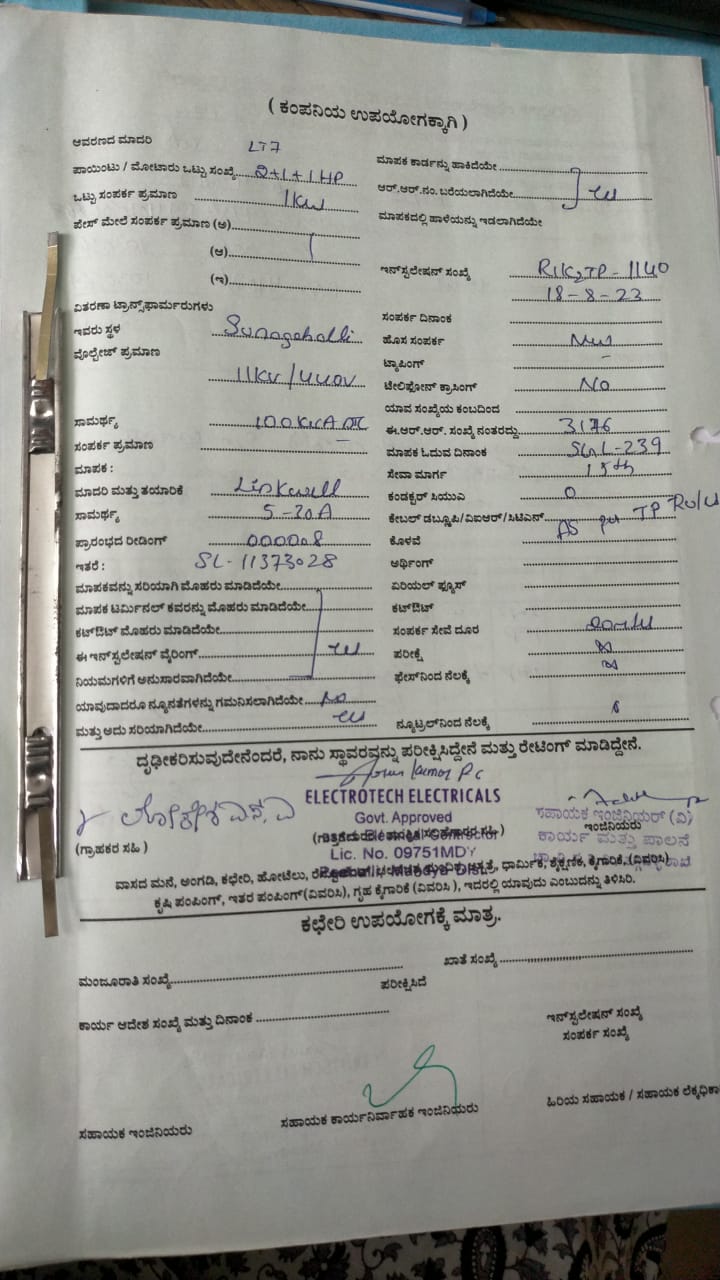 ( ಕಂಪನಿಯ ಉಪಯೋಗಕ್ಕಾಗಿ )
ಆವರಣದ ಮಾದರಿ LT7
ಪಾಯಿಂಟು / ಮೋಟಾರು ಒಟ್ಟು ಸಂಖ್ಯೆ 2+1+1HP
ಒಟ್ಟು ಸಂಪರ್ಕ ಪ್ರಮಾಣ 1KW
ಫೇಸ್ ಮೇಲೆ ಸಂಪರ್ಕ ಪ್ರಮಾಣ (ಅ)
(ಆ)
(ಇ)
ವಿತರಣಾ ಟ್ರಾನ್ಸ್‌ಫಾರ್ಮರುಗಳು
ಇವರು ಸ್ಥಳ Sunagahalli
ವೊಲ್ಟೇಜ್ ಪ್ರಮಾಣ
11KV/440V
ಸಾಮರ್ಥ್ಯ 100KVA
ಸಂಪರ್ಕ ಪ್ರಮಾಣ
ಮಾಪಕ :
ಮಾದರಿ ಮತ್ತು ತಯಾರಿಕೆ Linkwell
ಸಾಮರ್ಥ್ಯ 5-30A
ಪ್ರಾರಂಭದ ರೀಡಿಂಗ್ 000008
ಇತರೆ : SL-11373028
ಮಾಪಕವನ್ನು ಸರಿಯಾಗಿ ಮೊಹರು ಮಾಡಿದೆಯೇ
ಮಾಪಕ ಟರ್ಮಿನಲ್ ಕವರನ್ನು ಮೊಹರು ಮಾಡಿದೆಯೇ
ಕಟ್‌ಔಟ್ ಮೊಹರು ಮಾಡಿದೆಯೇ
ಈ ಇನ್‌ಸ್ಟಲೇಷನ್ ವೈರಿಂಗ್
ನಿಯಮಗಳಿಗೆ ಅನುಸಾರವಾಗಿದೆಯೇ
ಯಾವುದಾದರೂ ನ್ಯೂನತೆಗಳನ್ನು ಗಮನಿಸಲಾಗಿದೆಯೇ No
ಮತ್ತು ಅದು ಸರಿಯಾಗಿದೆಯೇ
ಮಾಪಕ ಕಾರ್ಡನ್ನು ಹಾಕಿದೆಯೇ
ಆರ್.ಆರ್.ನಂ. ಬರೆಯಲಾಗಿದೆಯೇ
ಮಾಪಕದಲ್ಲಿ ಹಾಳೆಯನ್ನು ಇಡಲಾಗಿದೆಯೇ
ಇನ್‌ಸ್ಟಲೇಷನ್ ಸಂಖ್ಯೆ TP-1140
18-8-23
ಸಂಪರ್ಕ ದಿನಾಂಕ
ಹೊಸ ಸಂಪರ್ಕ New
ಟ್ಯಾಪಿಂಗ್ -
ಟೆಲಿಫೋನ್ ಕ್ರಾಸಿಂಗ್ No
ಯಾವ ಸಂಖ್ಯೆಯ ಕಂಬದಿಂದ
ಈ.ಆರ್.ಆರ್. ಸಂಖ್ಯೆ ನಂತರದ್ದು 3176
ಮಾಪಕ ಓದುವ ದಿನಾಂಕ L-239
ಸೇವಾ ಮಾರ್ಗ 15th
ಕಂಡಕ್ಟರ್ ಸಿಯುಎ 0
ಕೇಬಲ್ ಡಬ್ಲ್ಯೂಪಿ/ವಿಐಆರ್/ಸಿಟಿಎಸ್ As per TP
ಕೊಳವೆ
ಅರ್ಥಿಂಗ್
ಏರಿಯಲ್ ಫ್ಯೂಸ್
ಕಟ್‌ಔಟ್
ಸಂಪರ್ಕ ಸೇವೆ ದೂರ
ಪರೀಕ್ಷೆ
ಫೇಸ್‌ನಿಂದ ನೆಲಕ್ಕೆ
ನ್ಯೂಟ್ರಲ್‌ನಿಂದ ನೆಲಕ್ಕೆ
ದೃಢೀಕರಿಸುವುದೇನೆಂದರೆ, ನಾನು ಸ್ಥಾವರವನ್ನು ಪರೀಕ್ಷಿಸಿದ್ದೇನೆ ಮತ್ತು ರೇಟಿಂಗ್ ಮಾಡಿದ್ದೇನೆ.
ELECTROTECH ELECTRICALS
Govt. Approved
Electrical Contractor
Lic. No. 09751MDY
Mandya Dist.
(ಗ್ರಾಹಕರ ಸಹಿ)
ಸಹಾಯಕ ಇಂಜಿನಿಯರ್ (ವಿ)
ಇಂಜಿನಿಯರು
ಕಾರ್ಯ ಮತ್ತು ಪಾಲನೆ
ವಾಸದ ಮನೆ, ಅಂಗಡಿ, ಕಛೇರಿ, ಹೋಟೆಲು, ಧಾರ್ಮಿಕ, ಶೈಕ್ಷಣಿಕ, ಕೈಗಾರಿಕೆ,(ವಿವರಿಸಿ)
ಕೃಷಿ ಪಂಪಿಂಗ್, ಇತರ ಪಂಪಿಂಗ್(ವಿವರಿಸಿ), ಗೃಹ ಕೈಗಾರಿಕೆ (ವಿವರಿಸಿ ), ಇದರಲ್ಲಿ ಯಾವುದು ಎಂಬುದನ್ನು ತಿಳಿಸಿರಿ.
ಕಛೇರಿ ಉಪಯೋಗಕ್ಕೆ ಮಾತ್ರ.
ಮಂಜೂರಾತಿ ಸಂಖ್ಯೆ ಖಾತೆ ಸಂಖ್ಯೆ
ಪರೀಕ್ಷಿಸಿದೆ
ಕಾರ್ಯ ಆದೇಶ ಸಂಖ್ಯೆ ಮತ್ತು ದಿನಾಂಕ
ಇನ್‌ಸ್ಟಲೇಷನ್ ಸಂಖ್ಯೆ
ಸಂಪರ್ಕ ಸಂಖ್ಯೆ
ಸಹಾಯಕ ಇಂಜಿನಿಯರು ಸಹಾಯಕ ಕಾರ್ಯನಿರ್ವಾಹಕ ಇಂಜಿನಿಯರು ಹಿರಿಯ ಸಹಾಯಕ / ಸಹಾಯಕ ಲೆಕ್ಕಾಧಿಕಾ